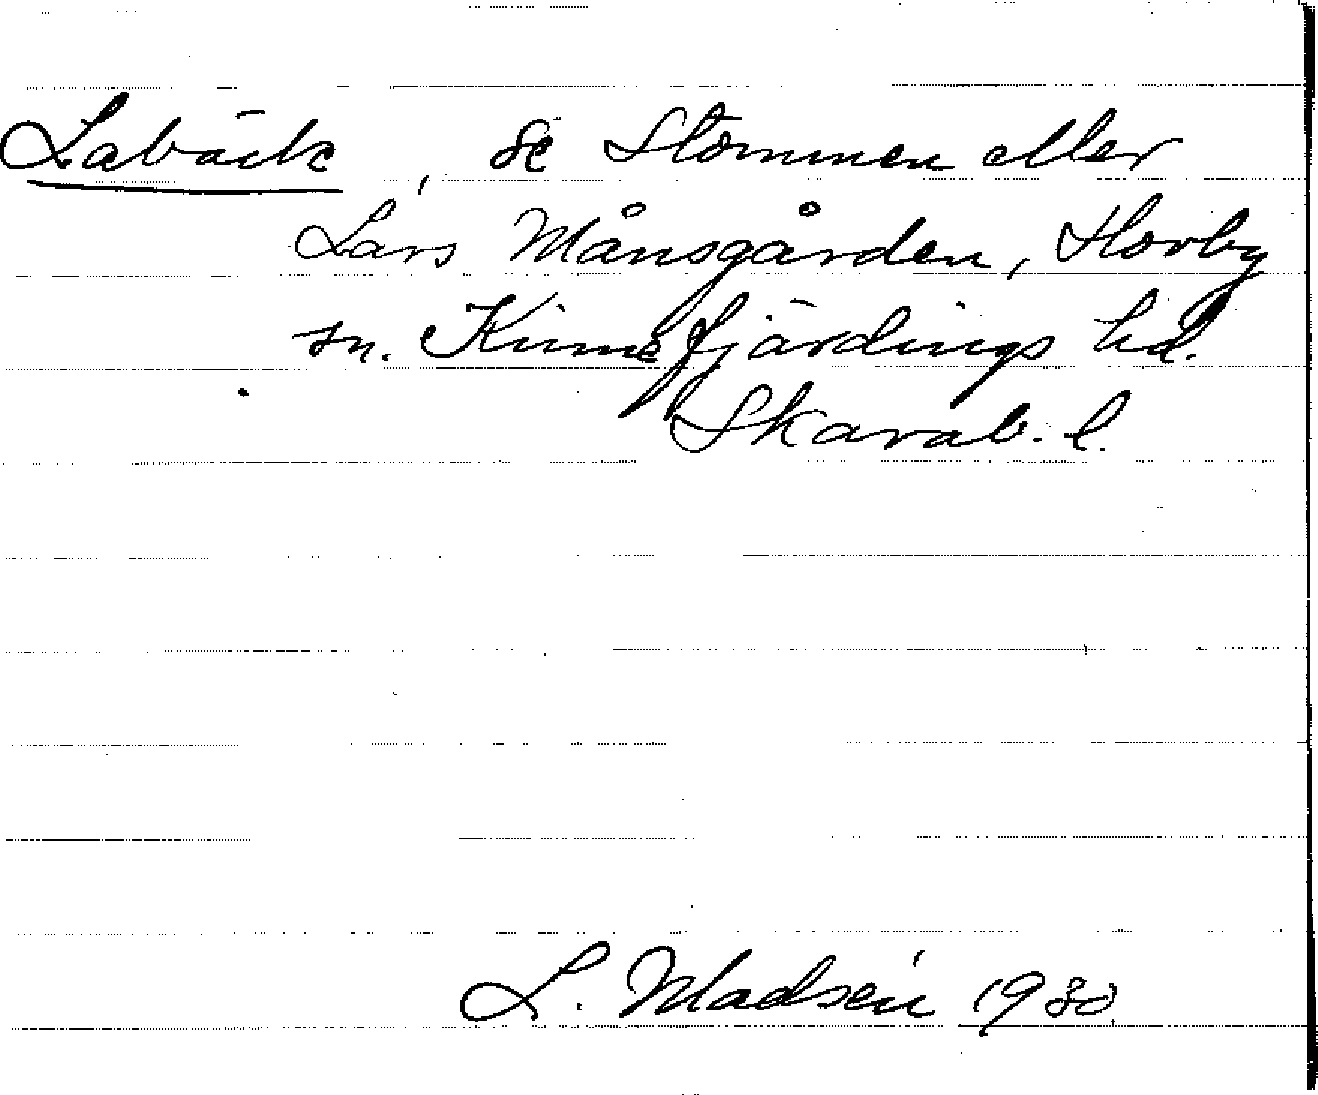 Labäck, se Stommen eller
Lars Månsgården, Hovby
sn. Kinnefjärdings hd.
Skarab. l.
L. Madsén 1980